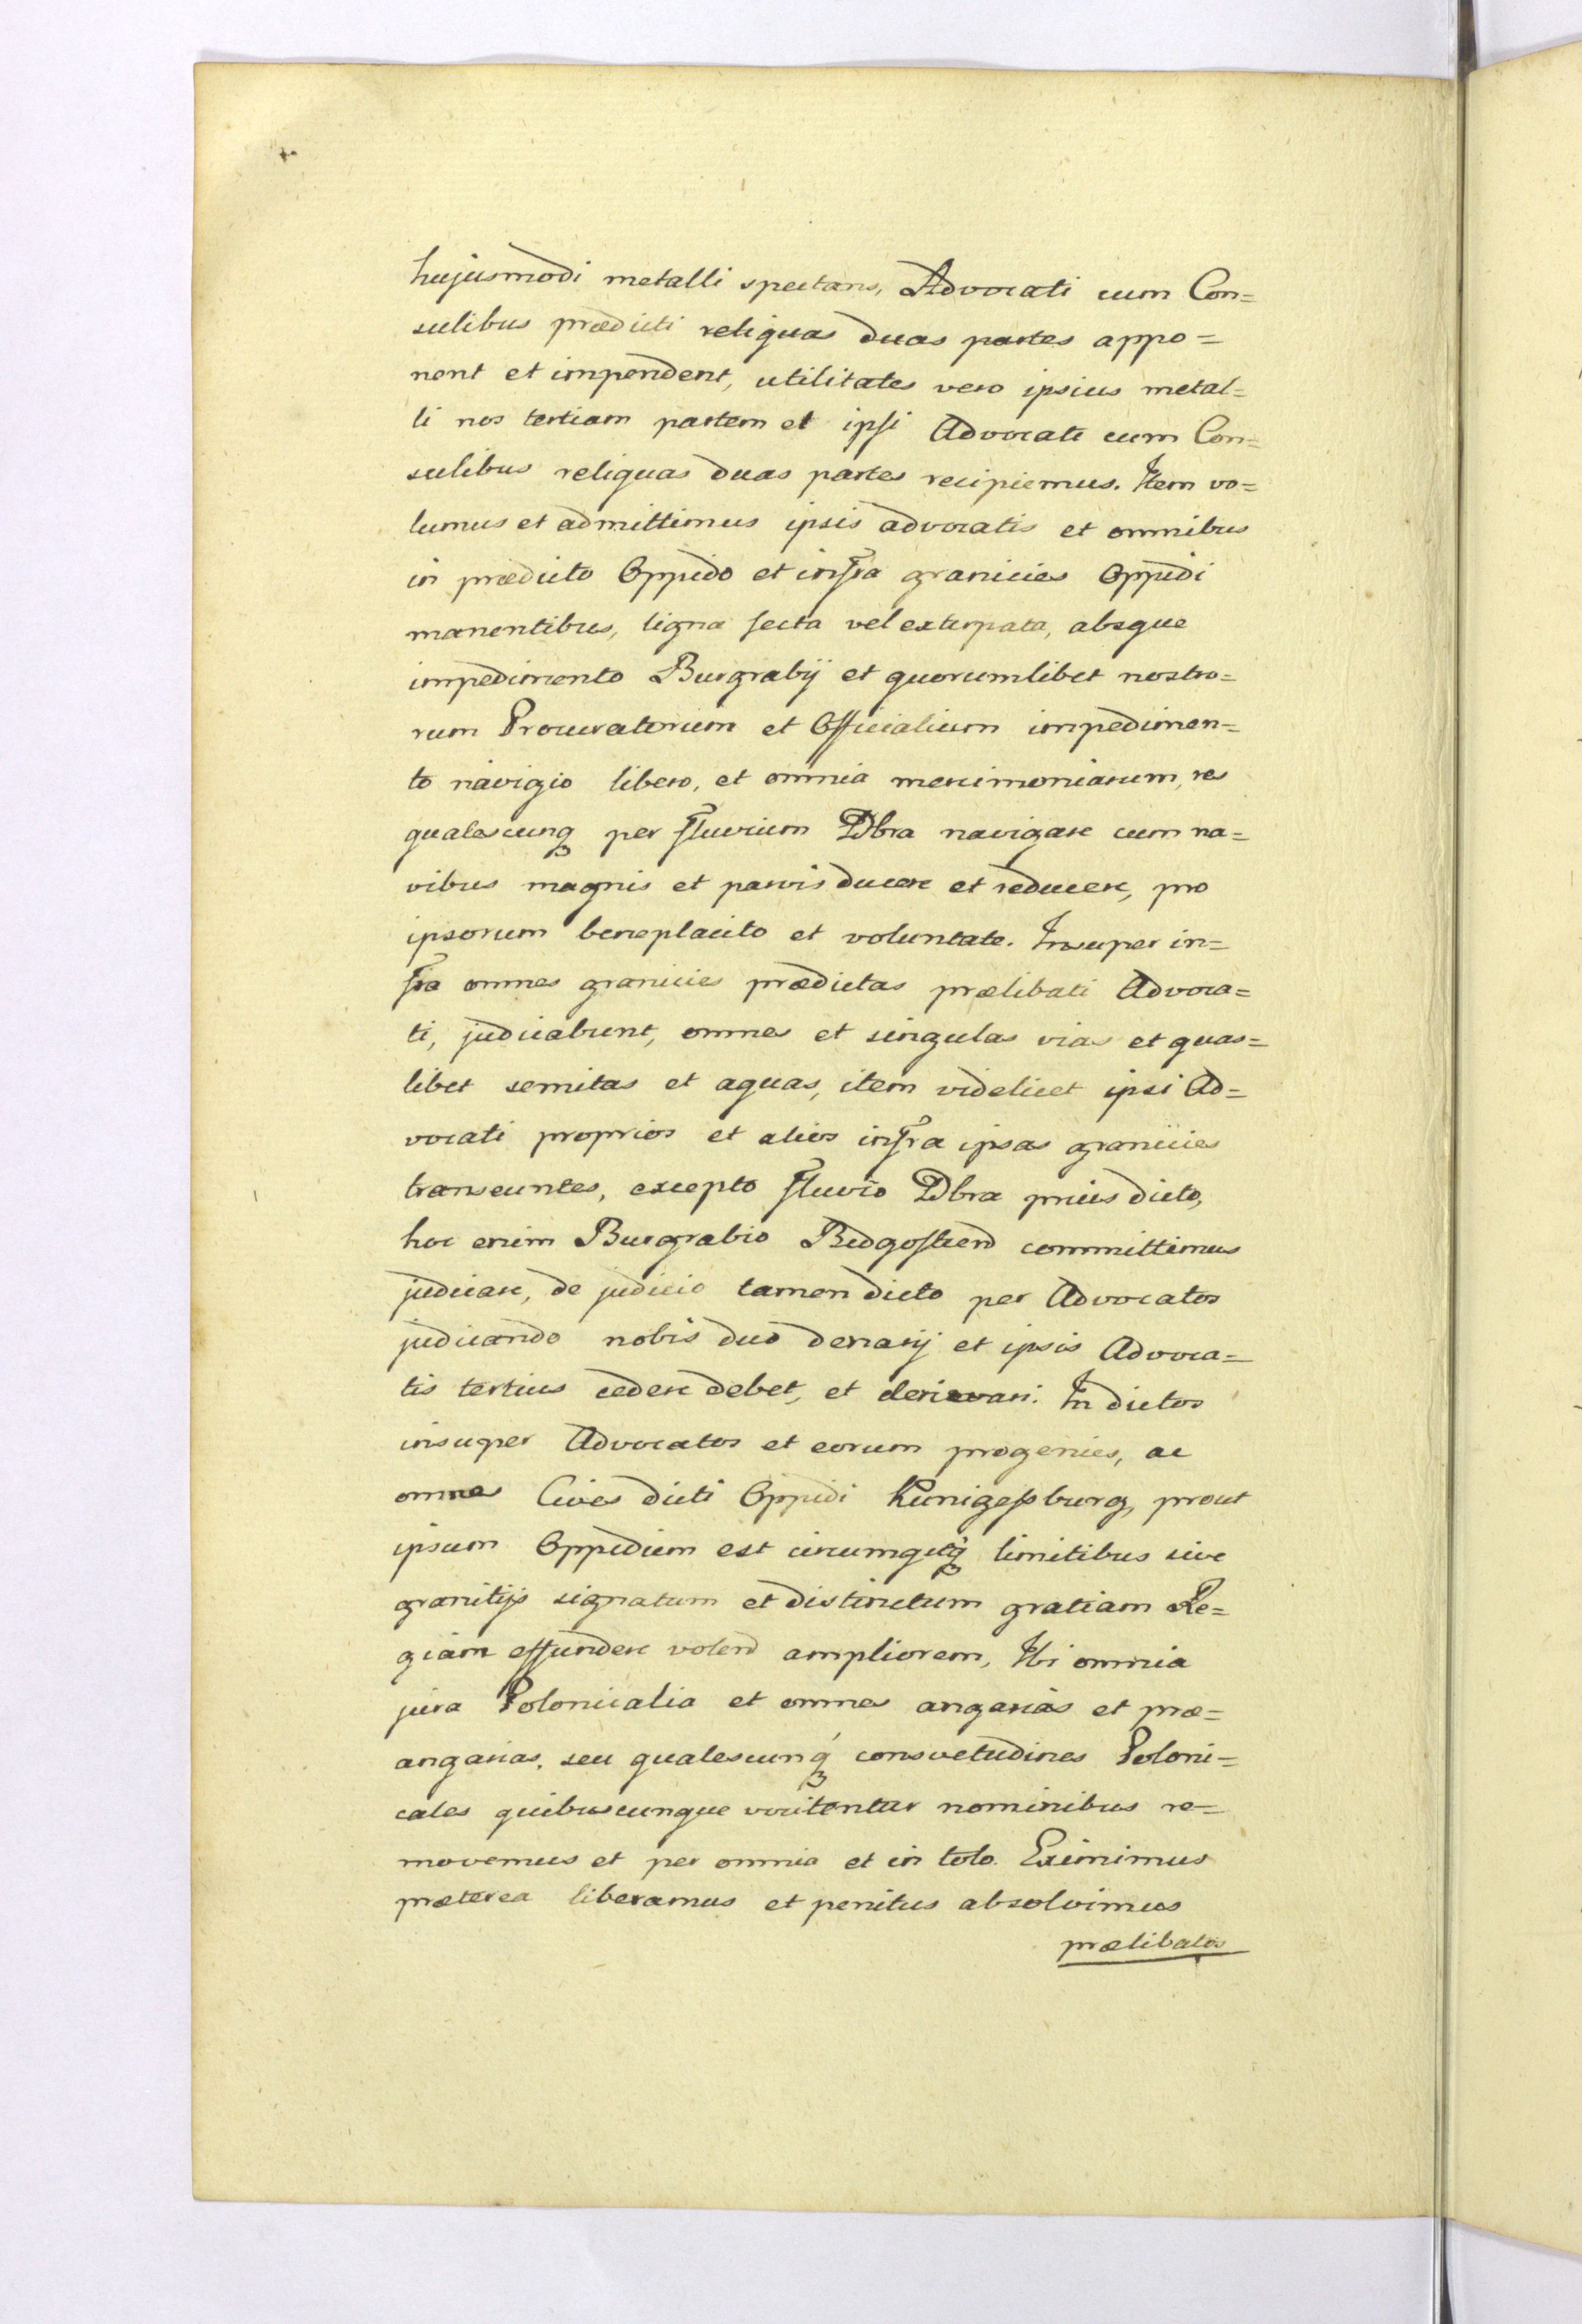 hujusmodi metalli spectans, Advocati cum Con=
sulibus prædicti reliquas duas partes appo=
nent et impendent, utilitates vero ipsius metal=
li nos tertiam partem et ipsi Advocati cum Con=
sulibus reliquas duas partes recipiemus. Item vo=
lumus et admittimus ipsis advocatis et omnibus
in prædicto Oppido et infra granicies Oppidi
manentibus, ligna secta vel exturpata, absque
impedimento Burgrabij et quorumlibet nostro=
rum Procuratorum et Officialium impedimen=
to navigio libero, et omnia mercimoniarum, res
qualescunq per fluvium Dbra navigare cum na=
vibus magnis et parvis ducere et reducere, pro
ipsorum beneplacito et voluntate. Insuper in=
fra omnes granicies prædictas prælibati Advoca=
ti, judicabunt, omnes et singulas vias et quas=
libet semitas et aquas, item videlicet ipsi Ad=
vocati proprios et alios infra ipsas granicies
transeuntes, excepto fluvio Dbra prius dicto,
hoc enim Burgrabio Bidgostiend committimus
judicare, de judicio tamen dicto per Advocatos
judicando nobis duo denarij et ipsis Advoca=
tis tertius cedere debet, et derivari. In dictos
insuper Advocatos et eorum progenies, ac
omnes Cives dicti Oppidi Kunigesburg, prout
ipsum Oppidum est circumquq limitibus sive
granitijs signatum et distinctum gratiam Re=
giam effundere volend ampliorem, Ibi omnia
jura Polonicalia et omnes angarias et præ=
angarias, seu qualescunq consvetudines Poloni=
cales quibuscunque vocitentur nominibus re=
movemus et per omnia et in toto. Eximimus
præterea liberamus et penitus absolvimus
prælibatos